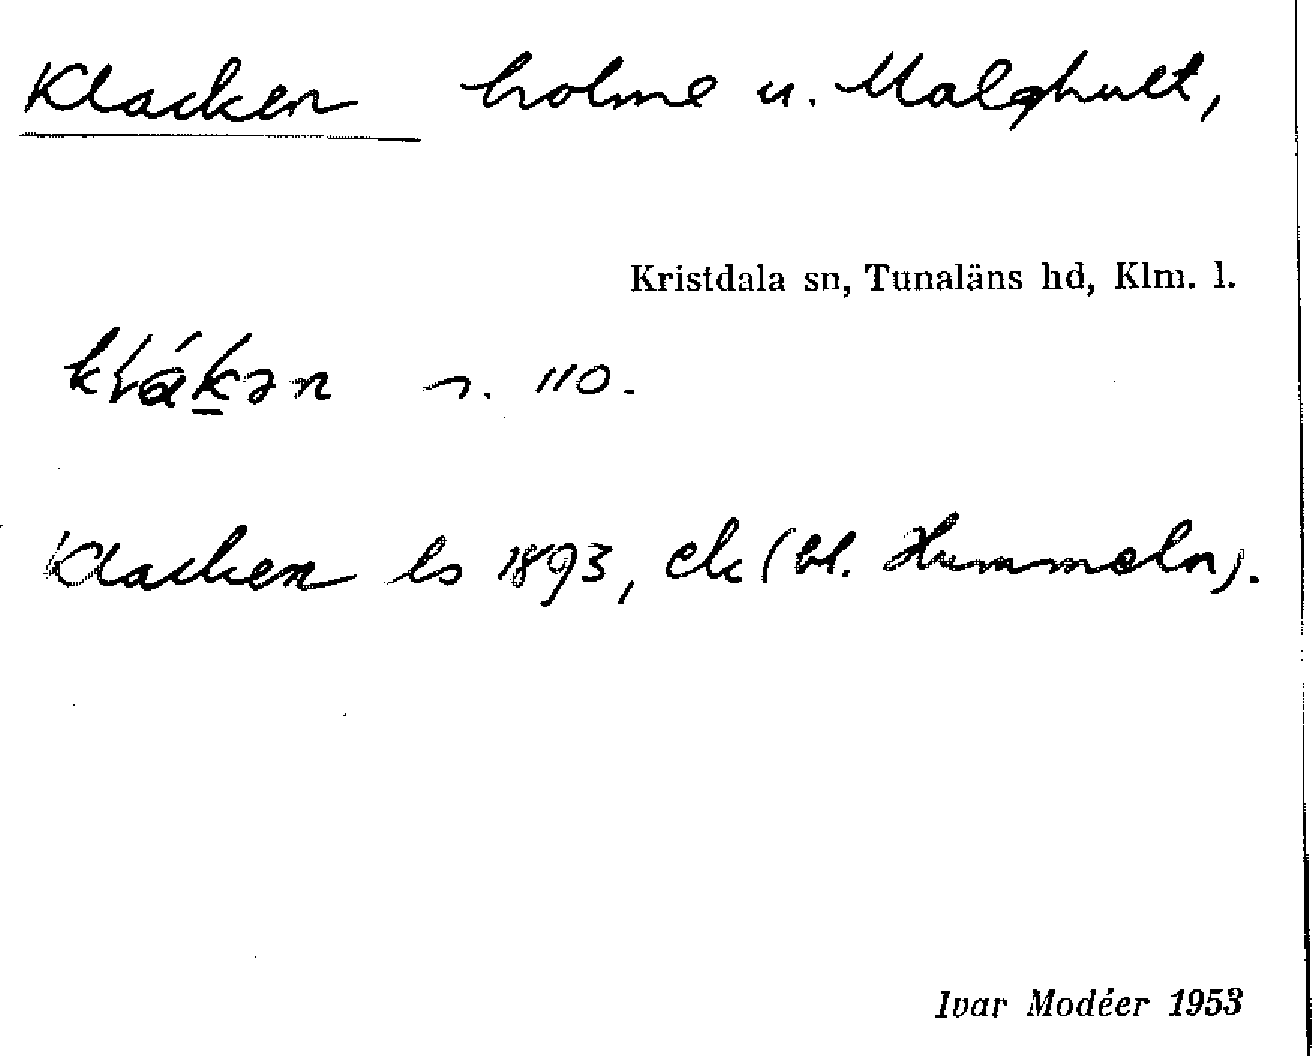 Klacken holme u. Malghult,
Kristdala sn, Tunaläns hd, Klm. l.
klák̲ən s. 110.
Klacken ls 1893, ek (bl. Hummeln).
Ivar Modéer 1953